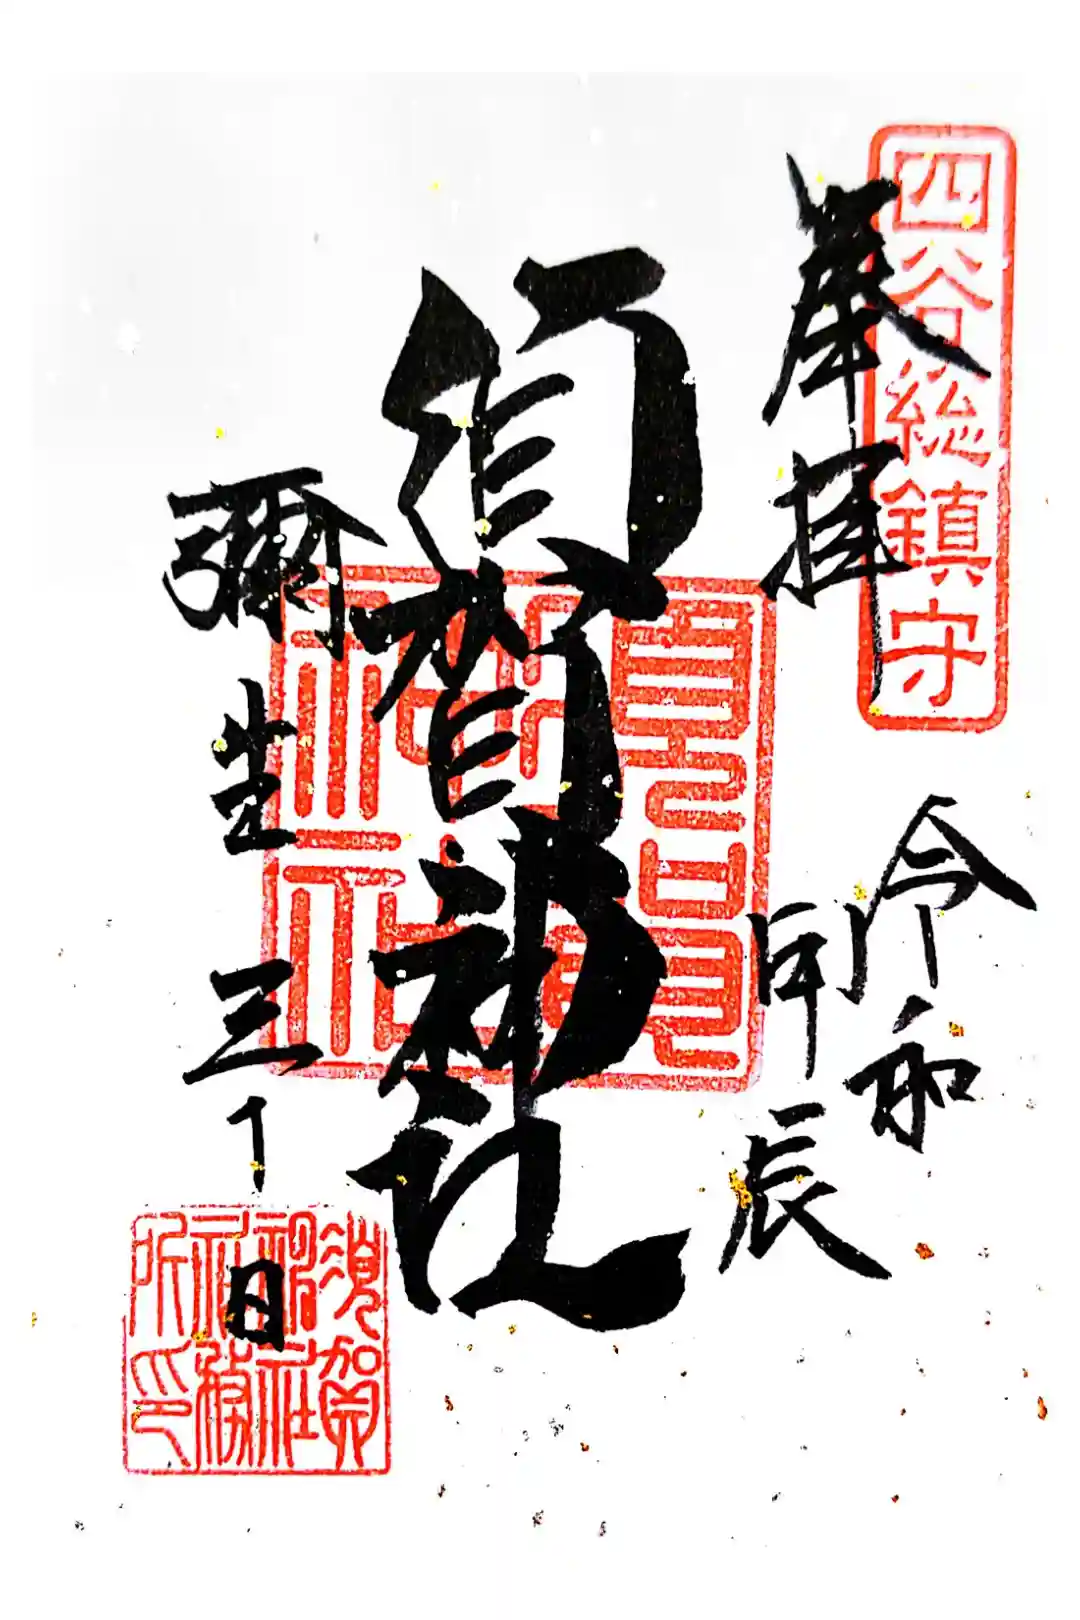 四谷総鎮守
奉拝
令和
甲辰
須賀神社
須賀神社
彌生 三十日
須賀
神社
社務
所印